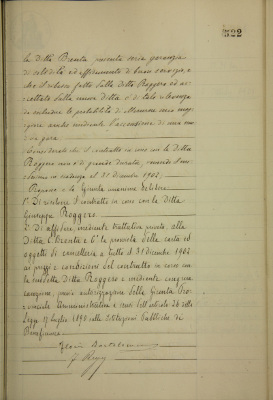 322
la Ditta Brenta presenta seria garanzia
di solidità ed affidamento di buon servizio, e
che il ribasso fatto dalla Ditta Roggero ed ac-
cettato dalla nuova Ditta è di tale
da escludere la probabilità di ottenerne uno mag-
giore anche mediante l'accensione di una nuo-
va gara.
Considerato che il contratto in corso con la Ditta
Roggero non è di grande durata, venendo
a scadenza al 31 dicembre 1902,
Propone e la Giunta unanime delibera:
1° Di risolvere il contratto in corso con la Ditta
Giuseppe Roggero.
2° Di affidare, mediante trattativa privata, alla
Ditta Brenta e C° la provvista della carta ed
oggetti di cancelleria a tutto il 31 dicembre 1902
ai prezzi e condizioni del contratto in corso con
la suddetta Ditta Roggero e mediante congrua
cauzione, previa autorizzazione della Giunta Pro-
vinciale Amministrativa a sensi dell'articolo 26 della
Legge 17 luglio 1890 sulle Istituzioni Pubbliche di
Beneficenza.